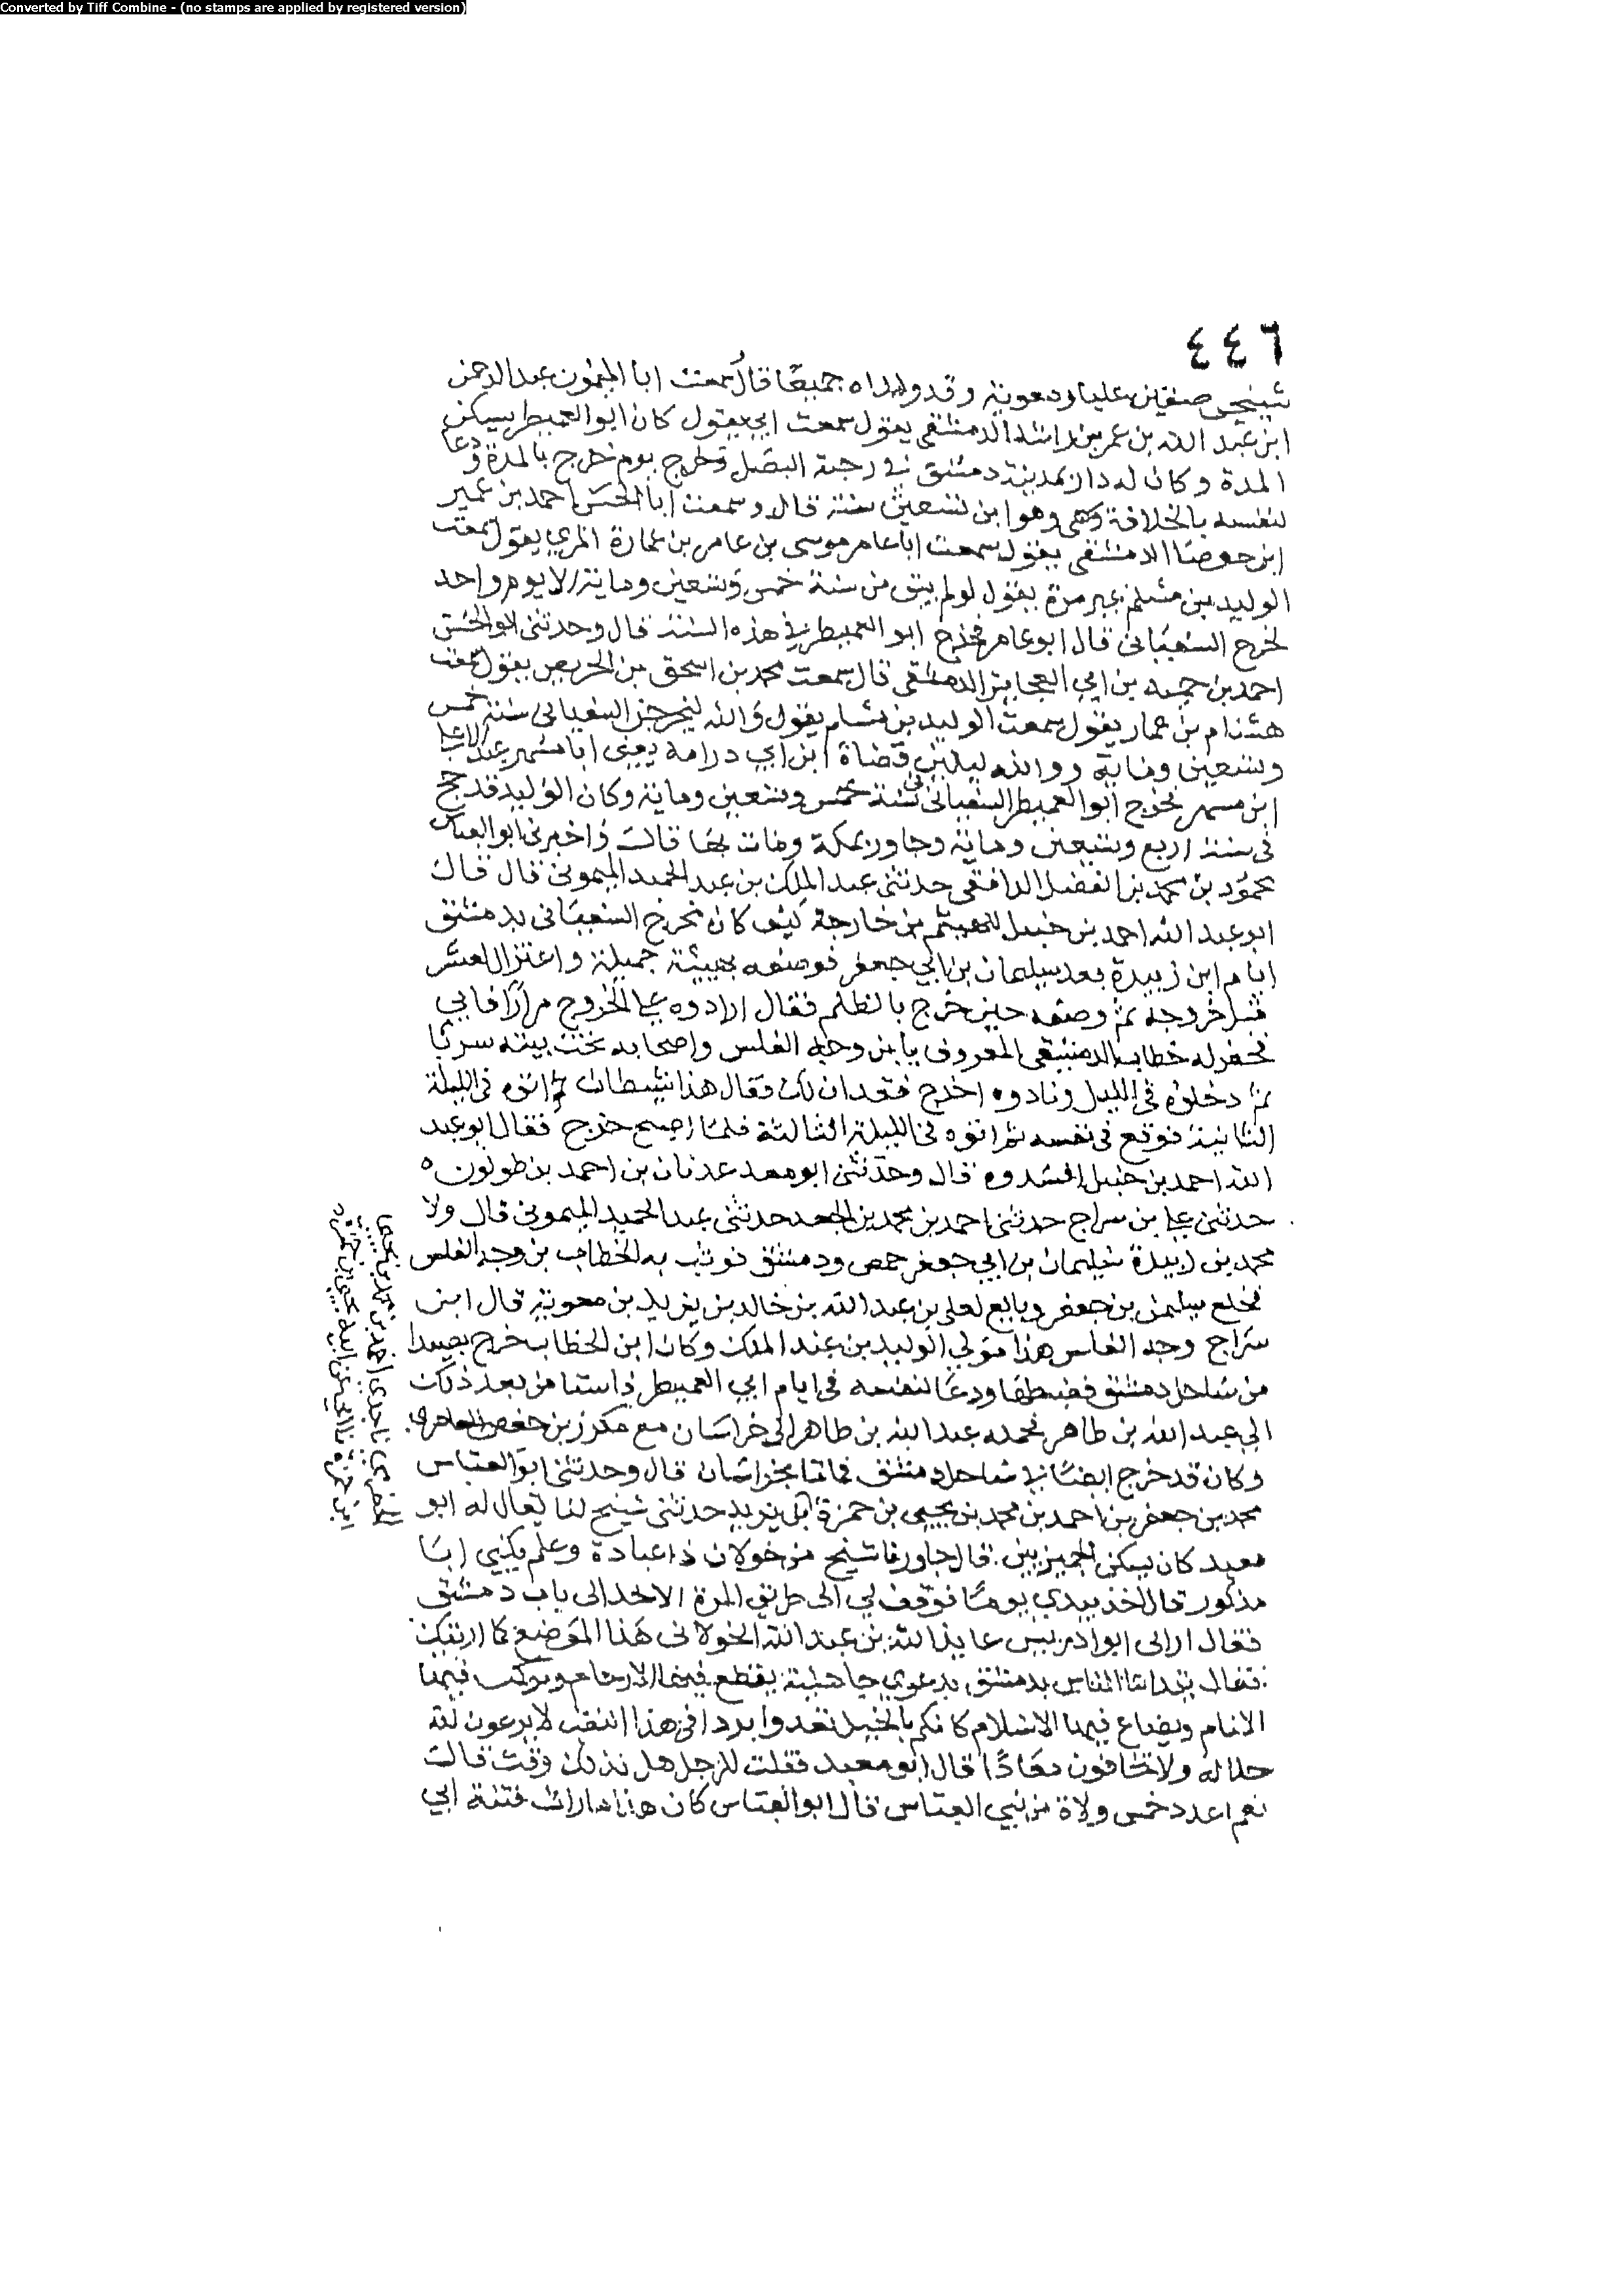 Converted by Tiff Combine - (no stamps are applied by registered version)
٤٤٦
شيخي صفين عليا ومعوية وقد ولداه جميعا قال سمعت ابا الميمون عبد الرحمن
ابن عبد الله بن عمر بن راشد الدمشقي يقول سمعت ابي يقول كان ابو العميطر يسكن
المزة وكان له دار بمدينة دمشق في رحبة البصل وخرج يوم خرج بالمزة ودعا
لنفسه بالخلافة وهو ابن تسعين سنة قال وسمعت ابا الحسن احمد بن عمير
ابن جوصا الدمشقي يقول سمعت ابا عامر موسى بن عامر بن عمارة المري يقول سمعت
الوليد بن مسلم غير مرة يقول لو لم يبق من سنة خمس وتسعين وماية الا يوم واحد
لخرج السفياني قال ابو عامر فخرج ابو العميطر في هذه السنة قال وحدثني ابو الحسن
احمد بن حميد بن ابي العجايز الدمشقي قال سمعت محمد بن اسحق بن الحريص يقول سمعت
هشام بن عمار يقول سمعت الوليد بن مسلم يقول والله ليخرجن السفياني سنة خمس
وتسعين وماية ووالله ليلين قضاة ابن ابي درامة يعني ابا مسهر عبد الاعلى
ابن مسهر فخرج ابو العميطر السفياني في سنة خمس وتسعين وماية وكان الوليد قد حج
في سنة اربع وتسعين وماية وجاور بمكة ومات بها قال واخبرني ابو العباس
محمود بن محمد بن الفضل الرافقي حدثني عبد الملك بن عبد الحميد الميموني قال قال
ابو عبد الله احمد بن حنبل للهيثم بن خارجة كيف كان مخرج السفياني بدمشق
ايام ابن زبيدة بعد سليمان بن ابي جعفر فوصفه بهيئة جميلة واعتزال للشر
قبل خروجه ثم وصفه حين خرج بالظلم فقال ارادوه على الخروج مرارا فابى
فحفر له خطاب الدمشقي المعروف بابن وجه الفلس واصحابه تحت بيته سربا
ثم دخلوه في الليل ونادوه اخرج فقد ان لك فقال هذا شيطان ثم اتوه في الليلة
الثانية فوقع في نفسه ثم اتوه في الليلة الثالثة فلما اصبح خرج فقال ابو عبد
الله احمد بن حنبل افسدوه قال وحدثني ابو معد عدنان بن احمد بن طولون
حدثني علي بن سراج حدثني احمد بن محمد بن الجعد حدثني عبد الحميد الميموني قال ولا
محمد بن زبيدة سليمان بن ابي جعفر حمص ودمشق فوثب به الخطاب بن وجه الفلس
فخلع سليمن بن جعفر وبايع لعلي بن عبد الله بن خالد بن يزيد بن معوية قال ابن
سراج وجه الفلس هذا مولي الوليد بن عبد الملك وكان ابن الخطاب خرج بصيدا
من ساحل دمشق فضبطها ودعا لنفسه في ايام ابي العميطر واستامن بعد ذلك
الي عبد الله بن طاهر فحمله عبد الله بن طاهر الى خراسان مع مكرز بن حفص العامري
وكان قد خرج ايضا في ساحل دمشق فماتا بخراسان قال وحدثني ابو العباس
محمد بن جعفر بن احمد بن محمد بن يحيى بن حمزة حدثني شيخ لنا يقال له ابو
معبد كان يسكن الحميريين قال جاورنا شيخ من خولان ذا عبادة وعلم يكني ابا
مذكور قال اخذ بيدي يوما فوقف بي الى طريق المزة الاخذ الى باب دمشق
فقال اراني ابو ادريس عايذ الله بن عبد الله الخولاني هذا الموضع كما اريتك
فقال يتداعا الناس بدمشق بدعوي جاهلية يقطع فيها الارحام ويركب فيها
الاثام ويضاع فيها الاسلام كانكم بالخيل تعدوا بردا في هذا النقب لا يرعون لله
جلاله ولا يخافون معادا قال ابو معبد فقلت للرجل هل لذلك وقت قال
نعم اعدد خمس ولاة من بني العباس قال ابو العباس كان هذا مارات فتنة ابي